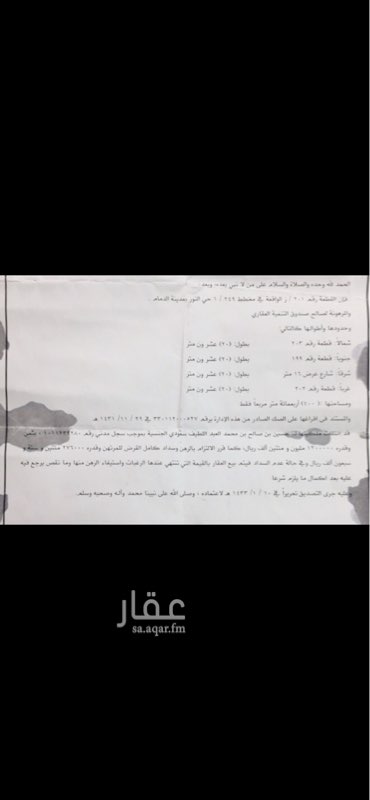 الحمد لله وحده والصلاة والسلام على من لا نبي بعده وبعد :
فإن القطعة رقم ٢٠١ / ز الواقعة في مخطط ٢٤٩ / ١ حي النور بمدينة الدمام .
والمرهونة لصالح صندوق التنمية العقاري
وحدودها وأطوالها كالتالي:
شمالا: قطعة رقم ٢٠٣ بطول: (٢٠) عشر ون متر
جنوبا: قطعة رقم ١٩٩ بطول: (٢٠) عشر ون متر
شرقا: شارع عرض ١٦ متر بطول: (٢٠) عشر ون متر
غربا: قطعة رقم ٢٠٢ بطول: (٢٠) عشر ون متر
ومساحتها: (٤٠٠) أربعمائة متر مربعا فقط
والمستند في افراغها على الصك الصادر من هذه الإدارة برقم في ٢٩ / ١١ / ١٤٣١ هـ
قد انتقلت ملكيتها لـ: حسين بن صالح بن محمد العبد اللطيف سعودي الجنسية بموجب سجل مدني رقم بثمن
وقدره ١٢٠٠٠٠٠ مليون و مئتين ألف ريال، كما قرر الالتزام بالرهن وسداد كامل القرض للمرتهن وقدره ٢٧٦٠٠٠ مئتين و ستة و
سبعون ألف ريال وفي حالة عدم السداد فيتم بيع العقار بالقيمة التي تنتهي عندها الرغبات واستيفاء الرهن منها وما نقص يرجع فيه
عليه بعد اكتمال ما يلزم شرعا
وعليه جرى التصديق تحريرا في ١٠ / ١ / ١٤٣٣ هـ لاعتماده ، وصلى الله على نبينا محمد وآله وصحبه وسلم.
عقار
sa.aqar.fm